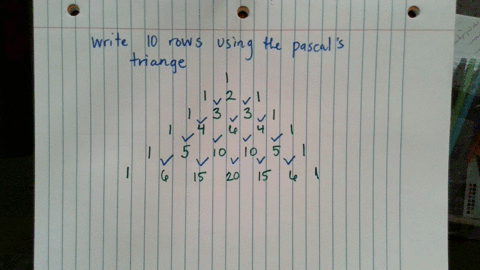 write 10 rows using the pascal's
triange
1
1 2 1
1 3 3 1
1 4 6 4 1
1 5 10 10 5 1
1 6 15 20 15 6 1